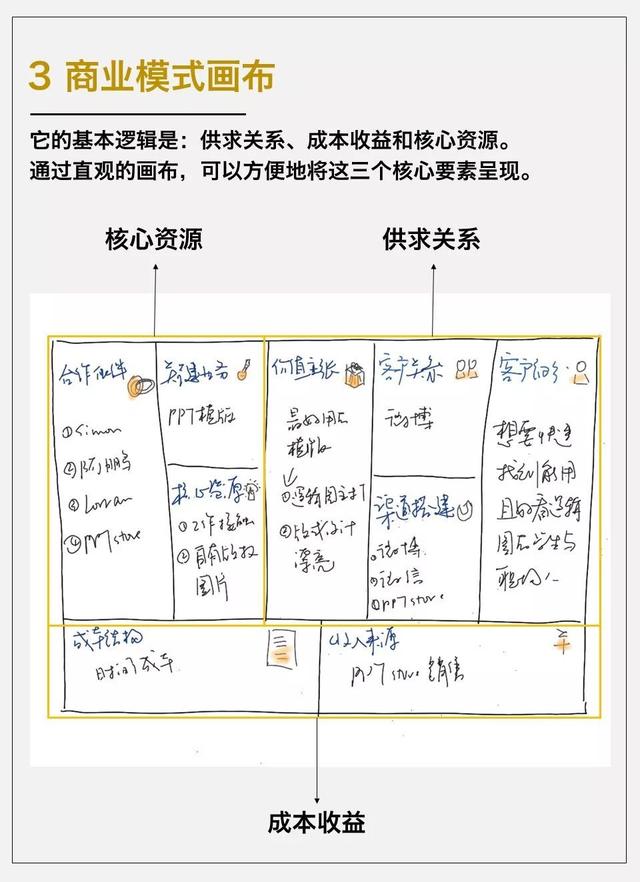 3 商业模式画布
它的基本逻辑是：供求关系、成本收益和核心资源。
通过直观的画布，可以方便地将这三个核心要素呈现。
核心资源
供求关系
合作伙伴
①Simon
④PPTstore
关键业务
PPT模版
核心资源
①工作接触
②自有版权
图片
价值主张
最好用的
模版
①逻辑图主打
②版式设计
漂亮
客户关系
微博
渠道搭建
微博
微信
PPTstore
客户细分
想要快速
找到能用
且好看逻辑
图的学生与
职场人
成本结构
时间成本
收入来源
PPTstore 销售
成本收益